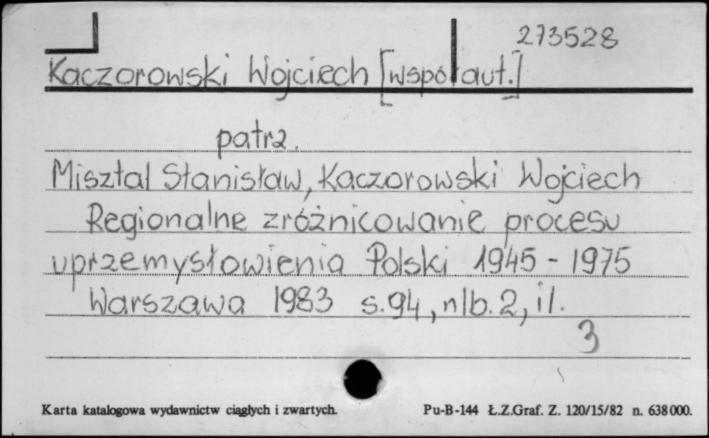 273528
Kaczorowski Wojciech [współaut.]
patrz.
Misztal Stanisław, Kaczorowski Wojciech
Regionalne zróżnicowanie procesu
uprzemysłowienia Polski 1945 - 1975
Warszawa 1983 s.94, nlb.2, il.
3
Karta katalogowa wydawnictw ciągłych i zwartych. Pu-B-144 Ł.Z.Graf. Z. 120/15/82 n. 638000.